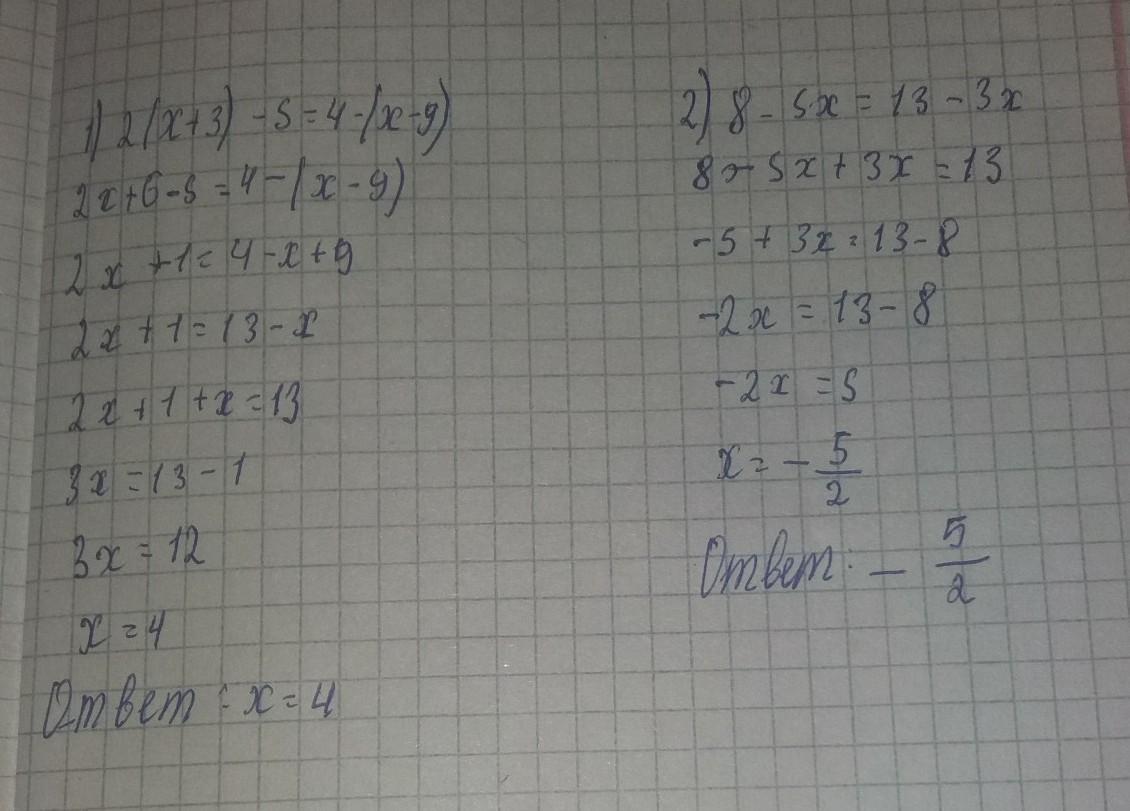 1) 2(x+3) - 5 = 4 - (x - 9)
2x + 6 - 5 = 4 - (x - 9)
2x + 1 = 4 - x + 9
2x + 1 = 13 - x
2x + 1 + x = 13
3x = 13 - 1
3x = 12
x = 4
Ответ: x = 4
2) 8 - 5x = 13 - 3x
8 - 5x + 3x = 13
-5 + 3x = 13 - 8
-2x = 13 - 8
-2x = 5
x = - 5/2
Ответ: - 5/2